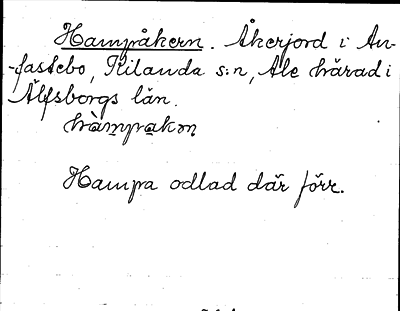 Hampåkern. Åkerjord i An-
-fastebo, Kilanda s:n, Ale härad i
Älfsborgs län.
hàmpakon
Hampa odlad där förr.